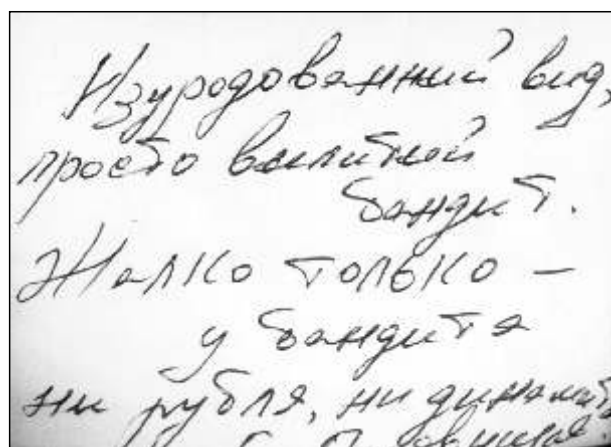 Изуродованний вид,
просто вылитой
бандит.
Жалко только –
у бандита
ни рубля, ни динамит